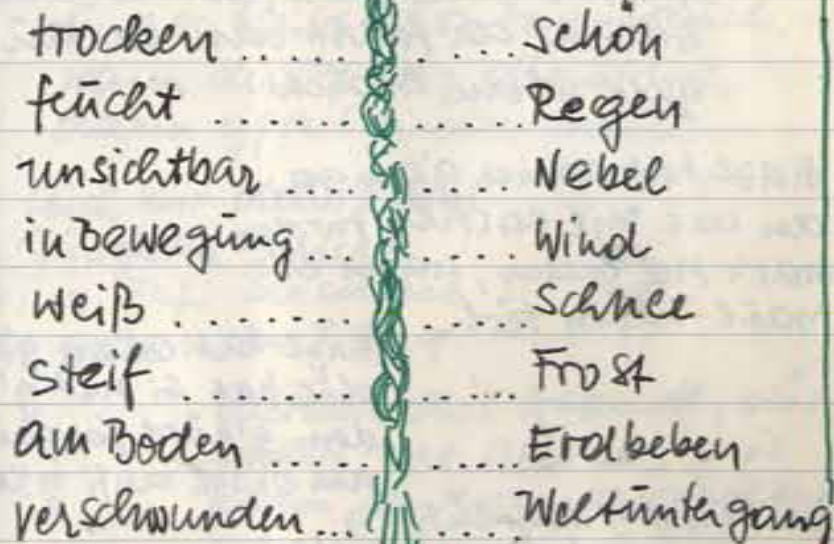 trocken ........ ..... schön
feucht ........ ..... Regen
unsichtbar .... ..... Nebel
in Bewegung... ..... Wind
weiß ......... ..... Schnee
steif ......... ..... Frost
am Boden ...... ..... Erdbeben
verschwunden... ..... Weltuntergang